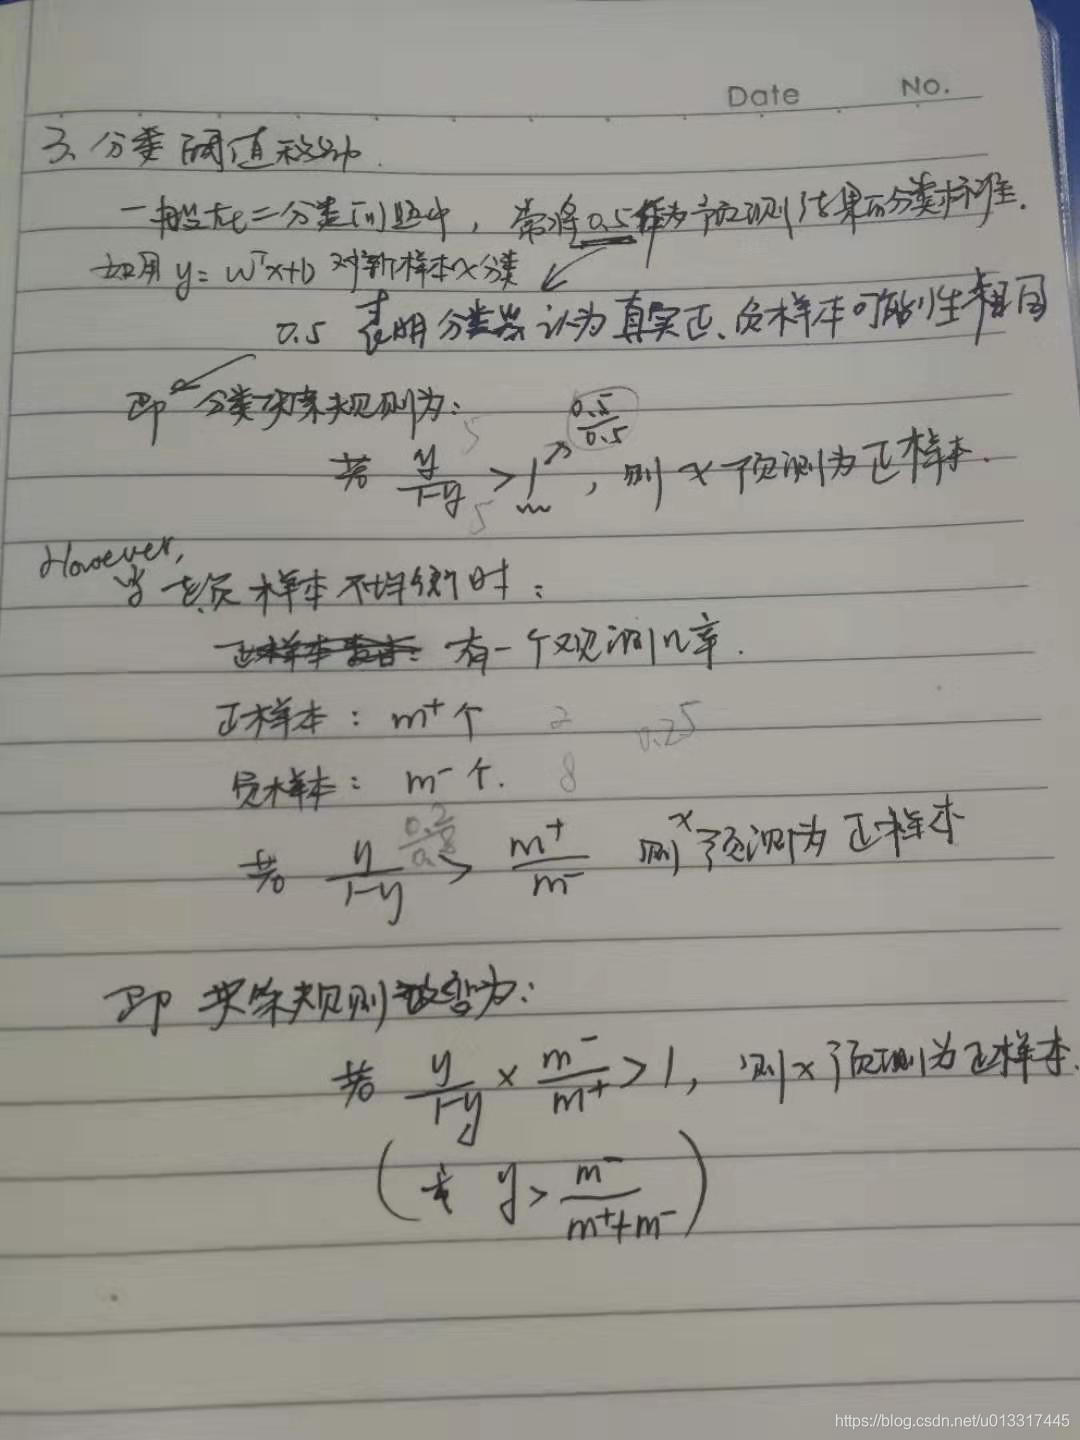 Date No.
3、分类阈值移动.
一般在二分类问题中，常将0.5作为预测结果的分类标准.
如用 y=wᵀx+b 对新样本x分类
0.5 表明分类器认为真实正、负样本可能性相同
即 分类决策规则为：
0.5/0.5
若 y/(1-y) > 1，则 x 预测为正样本.
5
5
However,
当正负样本不均衡时：
有一个观测几率.
正样本：m⁺个 2 0.25
负样本：m⁻个. 8
0.2/0.8
若 y/(1-y) > m⁺/m⁻ 则x预测为正样本
即 决策规则改变为：
若 y/(1-y) × m⁻/m⁺ > 1，则x预测为正样本.
( y > m⁻/(m⁺+m⁻) )
https://blog.csdn.net/u013317445